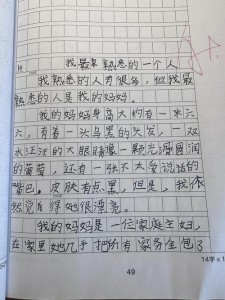 我最熟悉的一个人
我熟悉的人有很多，但我最
熟悉的人是我的妈妈。
我的妈妈身高大约有一米六
六，有着一头乌黑的头发，一双
水汪汪的大眼睛像一颗光滑圆润
的葡萄，还有一张不太爱说话的
嘴巴。皮肤有点黑，但是，我依
然觉得她很漂亮。
我的妈妈是一位家庭主妇，
在家里她几乎把所有家务全包了
49
14字×1